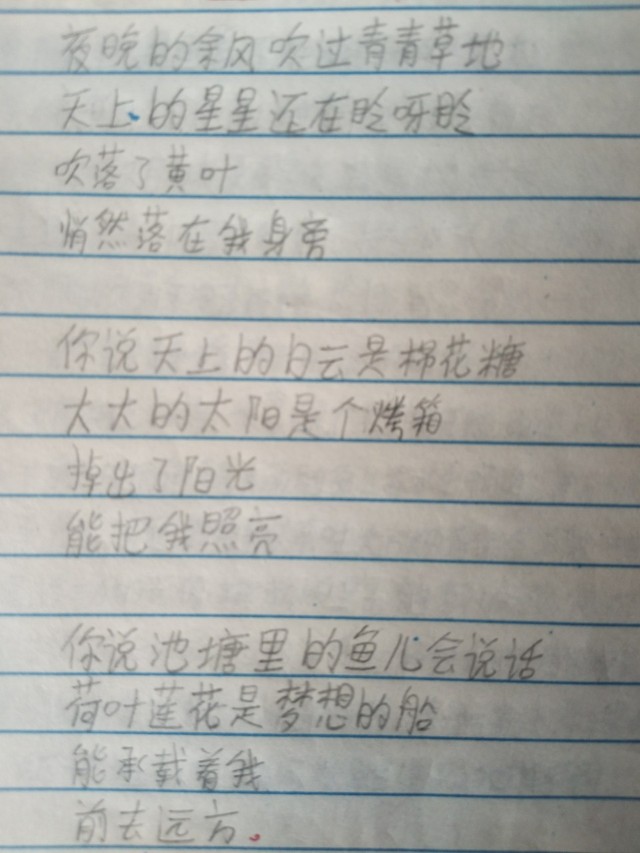 夜晚的余风吹过青青草地
天上的星星还在眨呀眨
吹落了黄叶
悄然落在我身旁
你说天上的白云是棉花糖
大大的太阳是个烤箱
掉出了阳光
能把我照亮
你说池塘里的鱼儿会说话
荷叶莲花是梦想的船
能承载着我
前去远方。